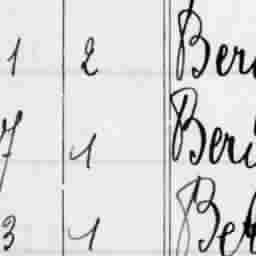 1 2 Beri
7 1 Beri
3 1 Bel